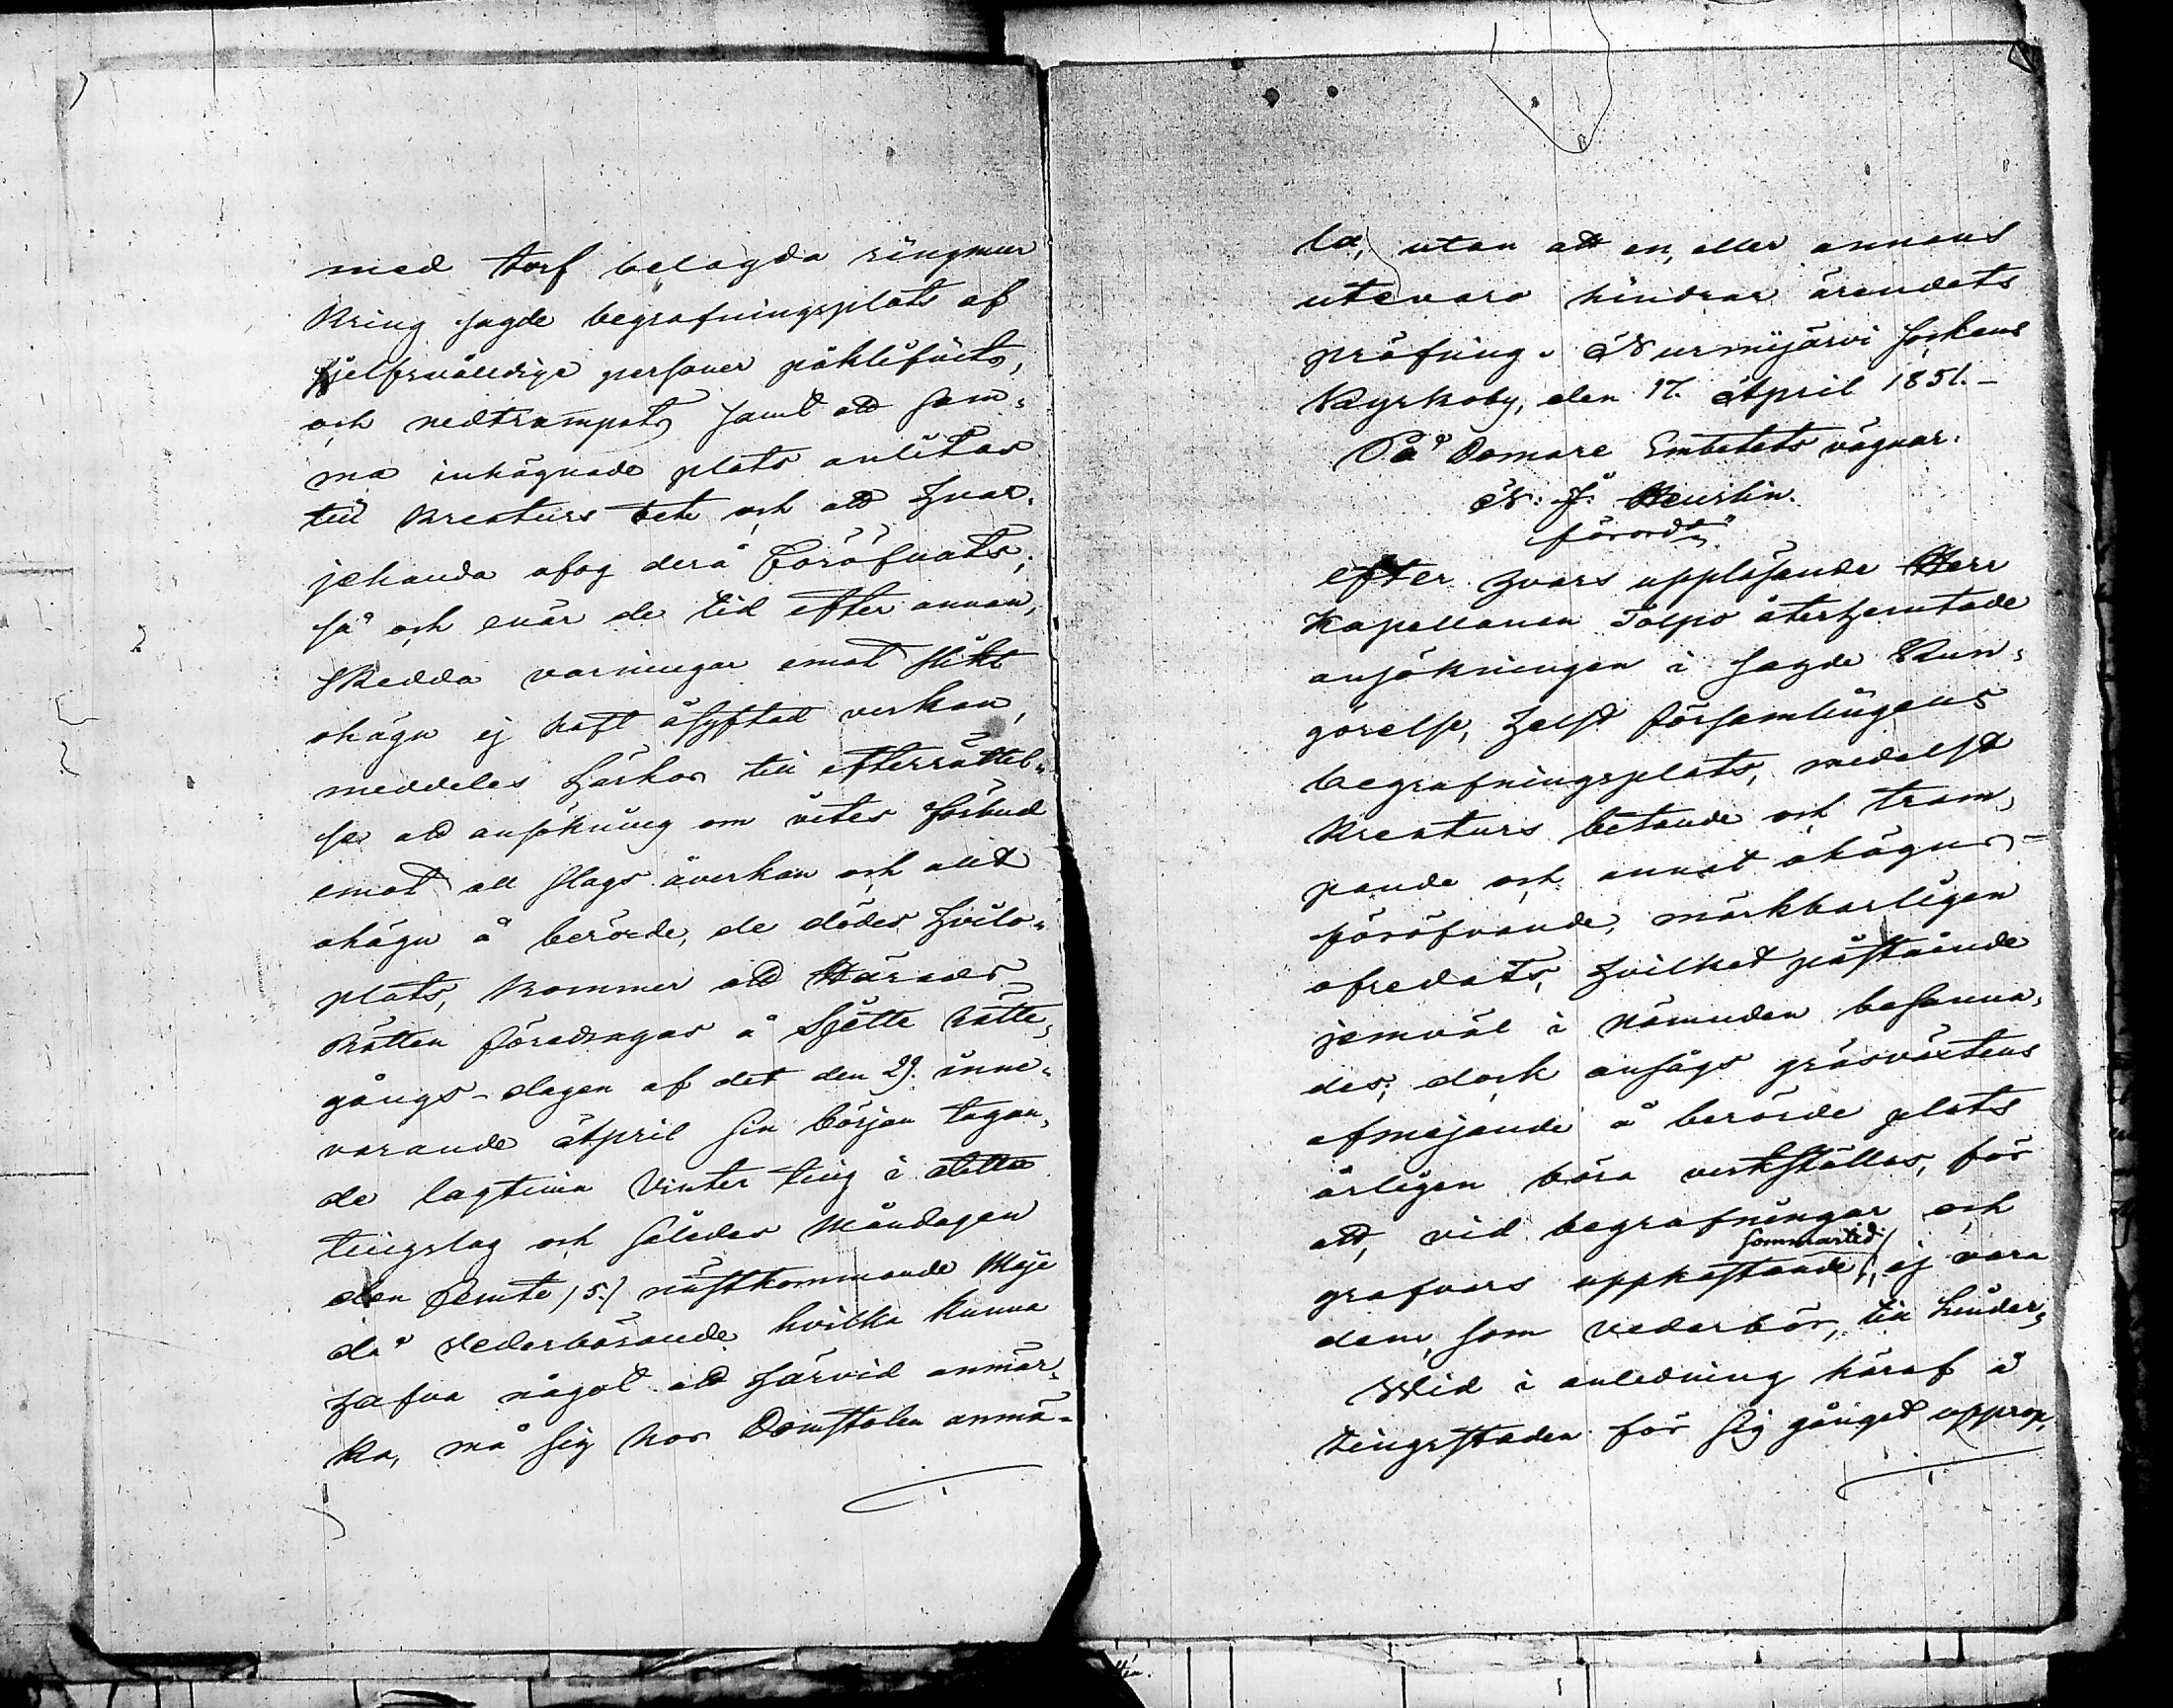 med torf belagda ringmur
kring sagde begrafningsplats af
sjelfsvåldige personer påklifvits,
och nedtrampats samt att sam-
ma inhägnade plats anlitas
till kreaturs bete och att hvar-
jehanda ofog derå föröfvats;
så och enär de tid efter annan,
skedda varningar emot slikt
ohägn ej haft åsyftad verkan,
meddeles härhos till efterrättel-
se att ansökning om vites förbud
emot all slags åverkan och allt
ohägn å berörde, de dödes hvilo-
plats, kommer att Härads
Rätten föredragas å Sjette rätte-
gångs-dagen af det den 29. inne-
varande April sin början tagan-
de lagtima Vinter ting i detta
tingslag och således Måndagen
den femte /5./ nästkommande Maji
då Vederbörande hvilka kunna
hafva något att härvid anmär-
ka, må sig hos Domstolen anmä-
la, utan att en, eller annans
utevaro hindrar ärendets
pröfning. Nurmijärvi Sockens
Kyrkoby, den 17. April 1851.-
På Domare Embetets vägnar.
N: J: Heurlin.
förordn:
efter hvars uppläsande Herr
Kapellanen Tolpo återhemtade
ansökningen i sagde Kun-
görelse, helst församlingens
begrafningsplats, medelst
kreaturs betande och tram-
pande och annat ohägns-
föröfvande, märkbarligen
ofredats, hvilket påstående
jemväl i nämnden besanna-
des; dock ansågs gräsväxtens
afmejande å berörde plats
årligen böra verkställas, för
att, vid begrafningar och
sommartid
grafvars uppkastande, ej vara
dem, som vederbör, till hinder.
Wid i anledning häraf å
tingsstaden för sig gånget upprop,